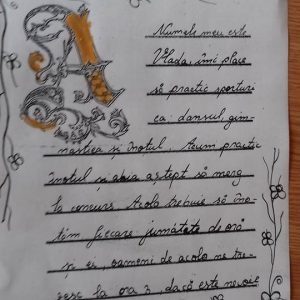 A
Numele meu este
Vlada, îmi place
să practic sporturi
ca: dansul, gim-
nastica și înotul. Acum practic
înotul și abia aștept să merg
la concurs. Acolo trebuie să îno-
tăm fiecare jumătate de oră
și ei, oameni de acolo ne tre-
zesc la ora 3, dacă este nevoie